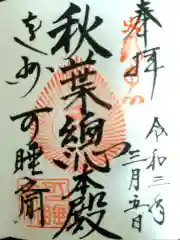 奉拝
令和三年
三月五日
秋葉總本殿
遠州
可睡斎